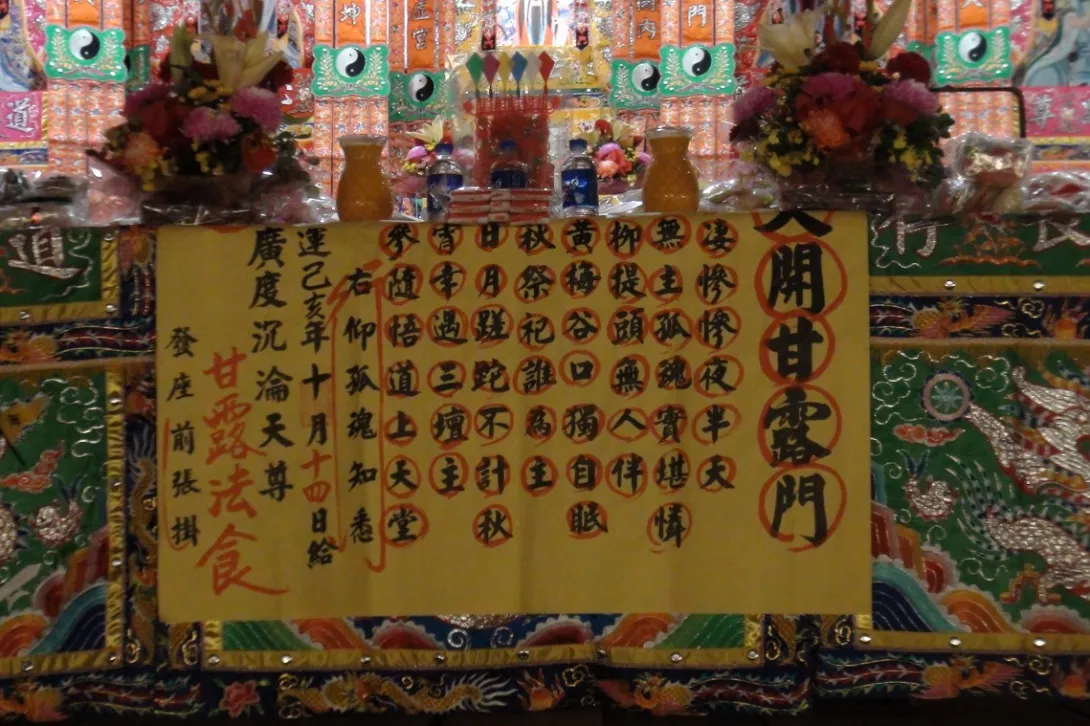 大開甘露門
凄慘慘夜半天
無主孤魂實堪憐
柳提頭無人伴
黃梅谷口獨自眠
秋祭祀誰為主
日月蹉跎不計秋
宵幸遇三壇主
參隨悟道上天堂
右仰孤魂知悉
運己亥年十月十四日給
廣度沉淪天尊
甘露法食
發座前張掛
坤
宮
門
道
尊
道